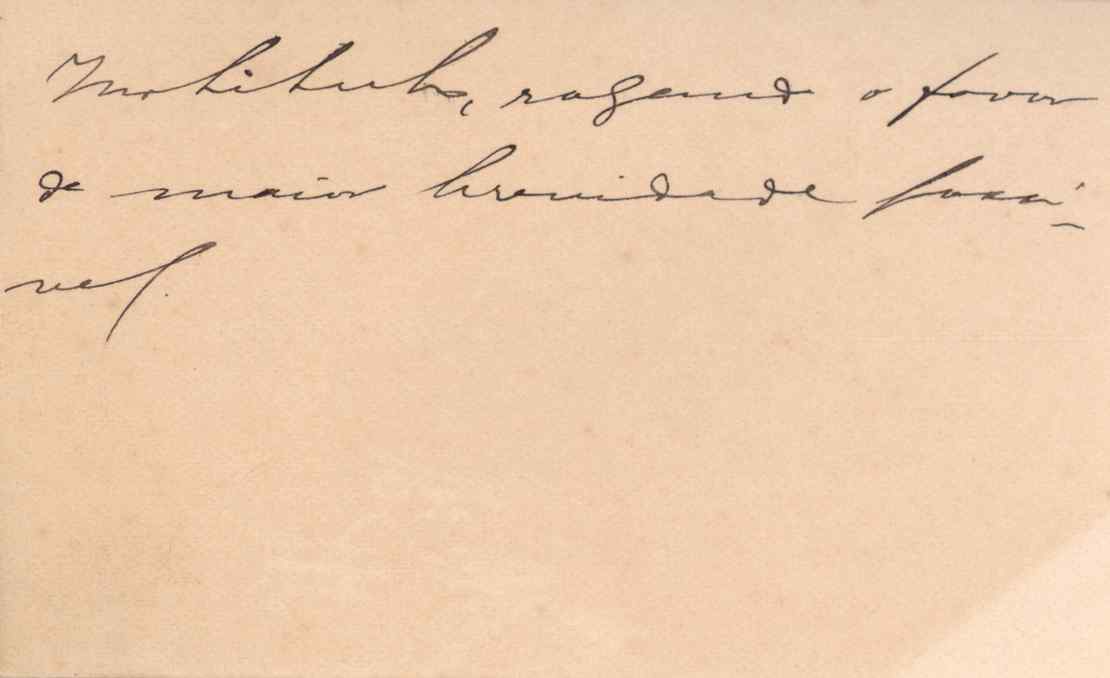 Instituto, rogando o favor
de maior brevidade possi-
vel.